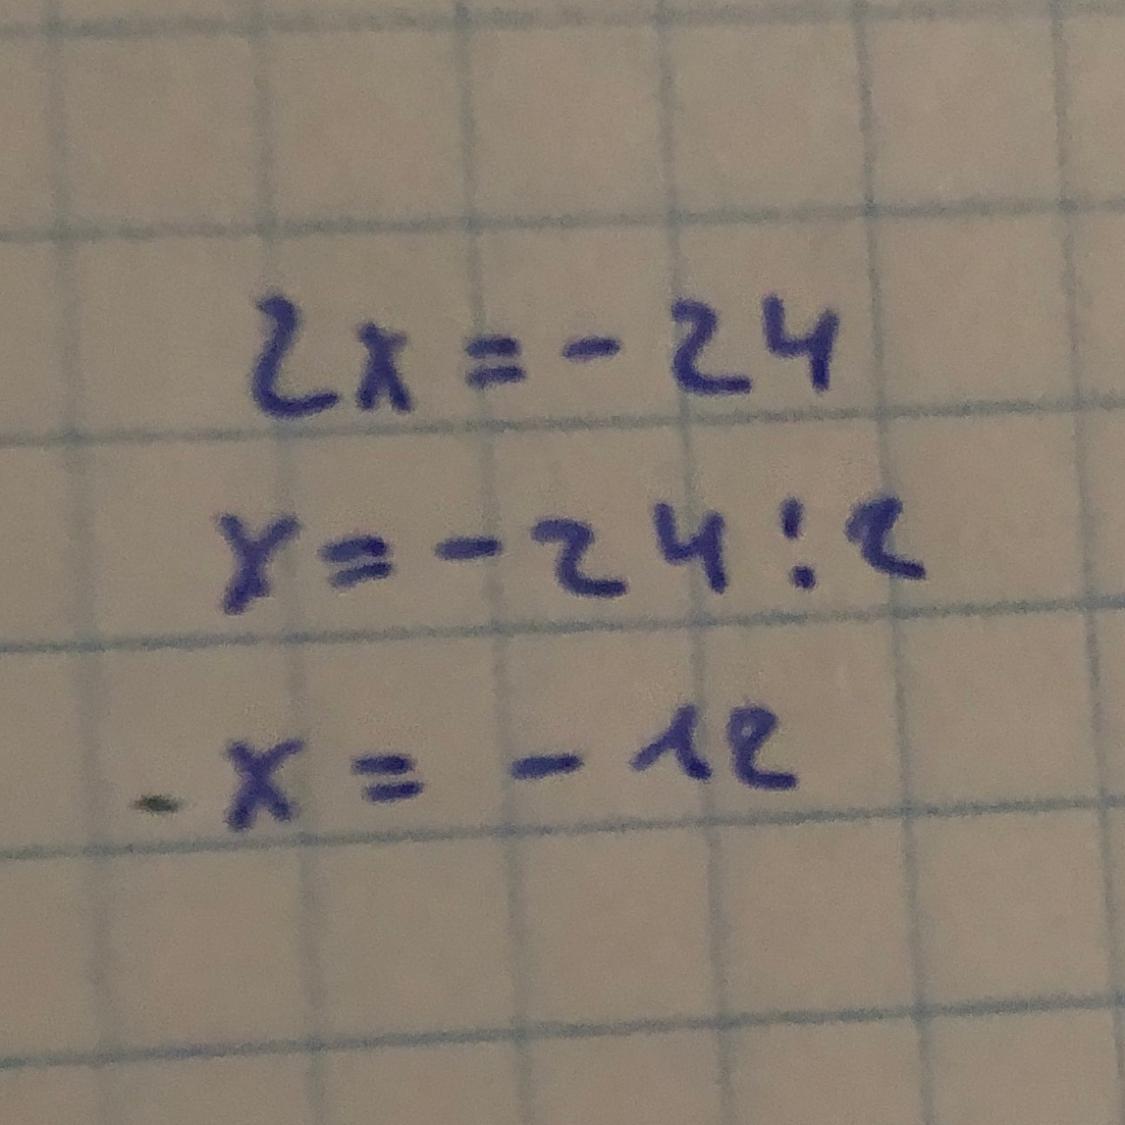 2x = - 24
x = - 24 : 2
x = - 12